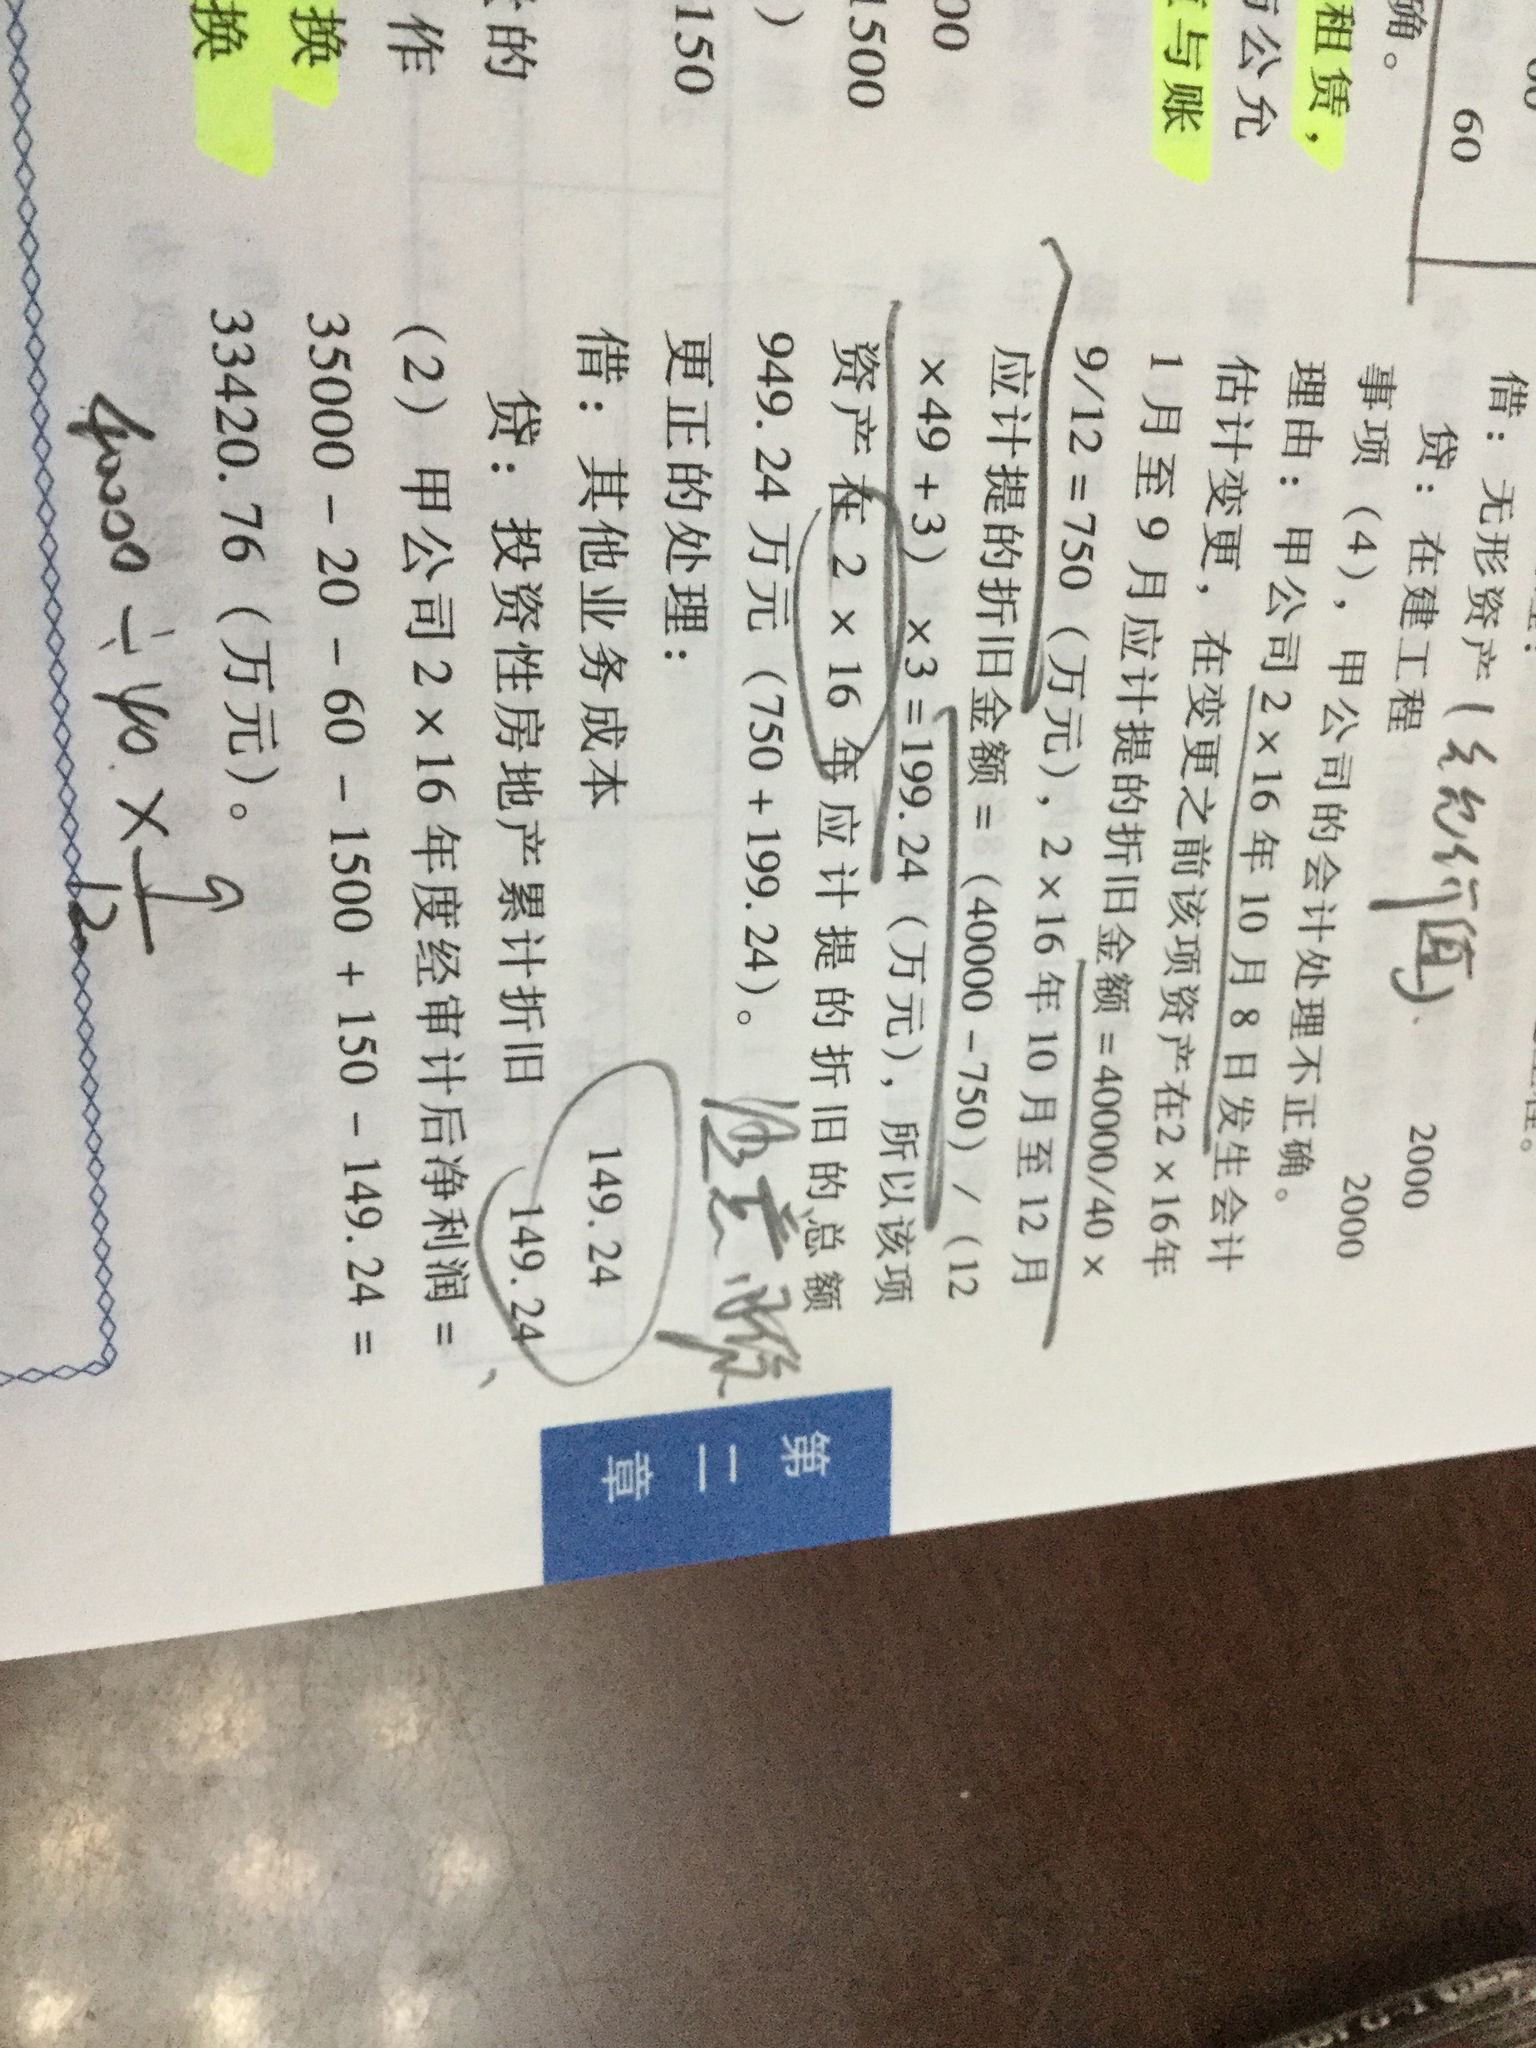 确。
60
租赁，
公允
与账
00
1500
）
150
的
作
换
换
借：无形资产（ 值）2000
贷：在建工程 2000
事项（4），甲公司的会计处理不正确。
理由：甲公司2×16年10月8日发生会计
估计变更，在变更之前该项资产在2×16年
1月至9月应计提的折旧金额＝40000/40×
9/12＝750（万元），2×16年10月至12月
应计提的折旧金额＝（40000－750）/（12
×49＋3）×3＝199.24（万元），所以该项
资产在2×16年应计提的折旧的总额
949.24万元（750＋199.24）。
更正的处理：
注意
借：其他业务成本 149.24
贷：投资性房地产累计折旧 149.24
（2）甲公司2×16年度经审计后净利润＝
35000－20－60－1500＋150－149.24＝
33420.76（万元）。
40000÷40×1/12
第二章